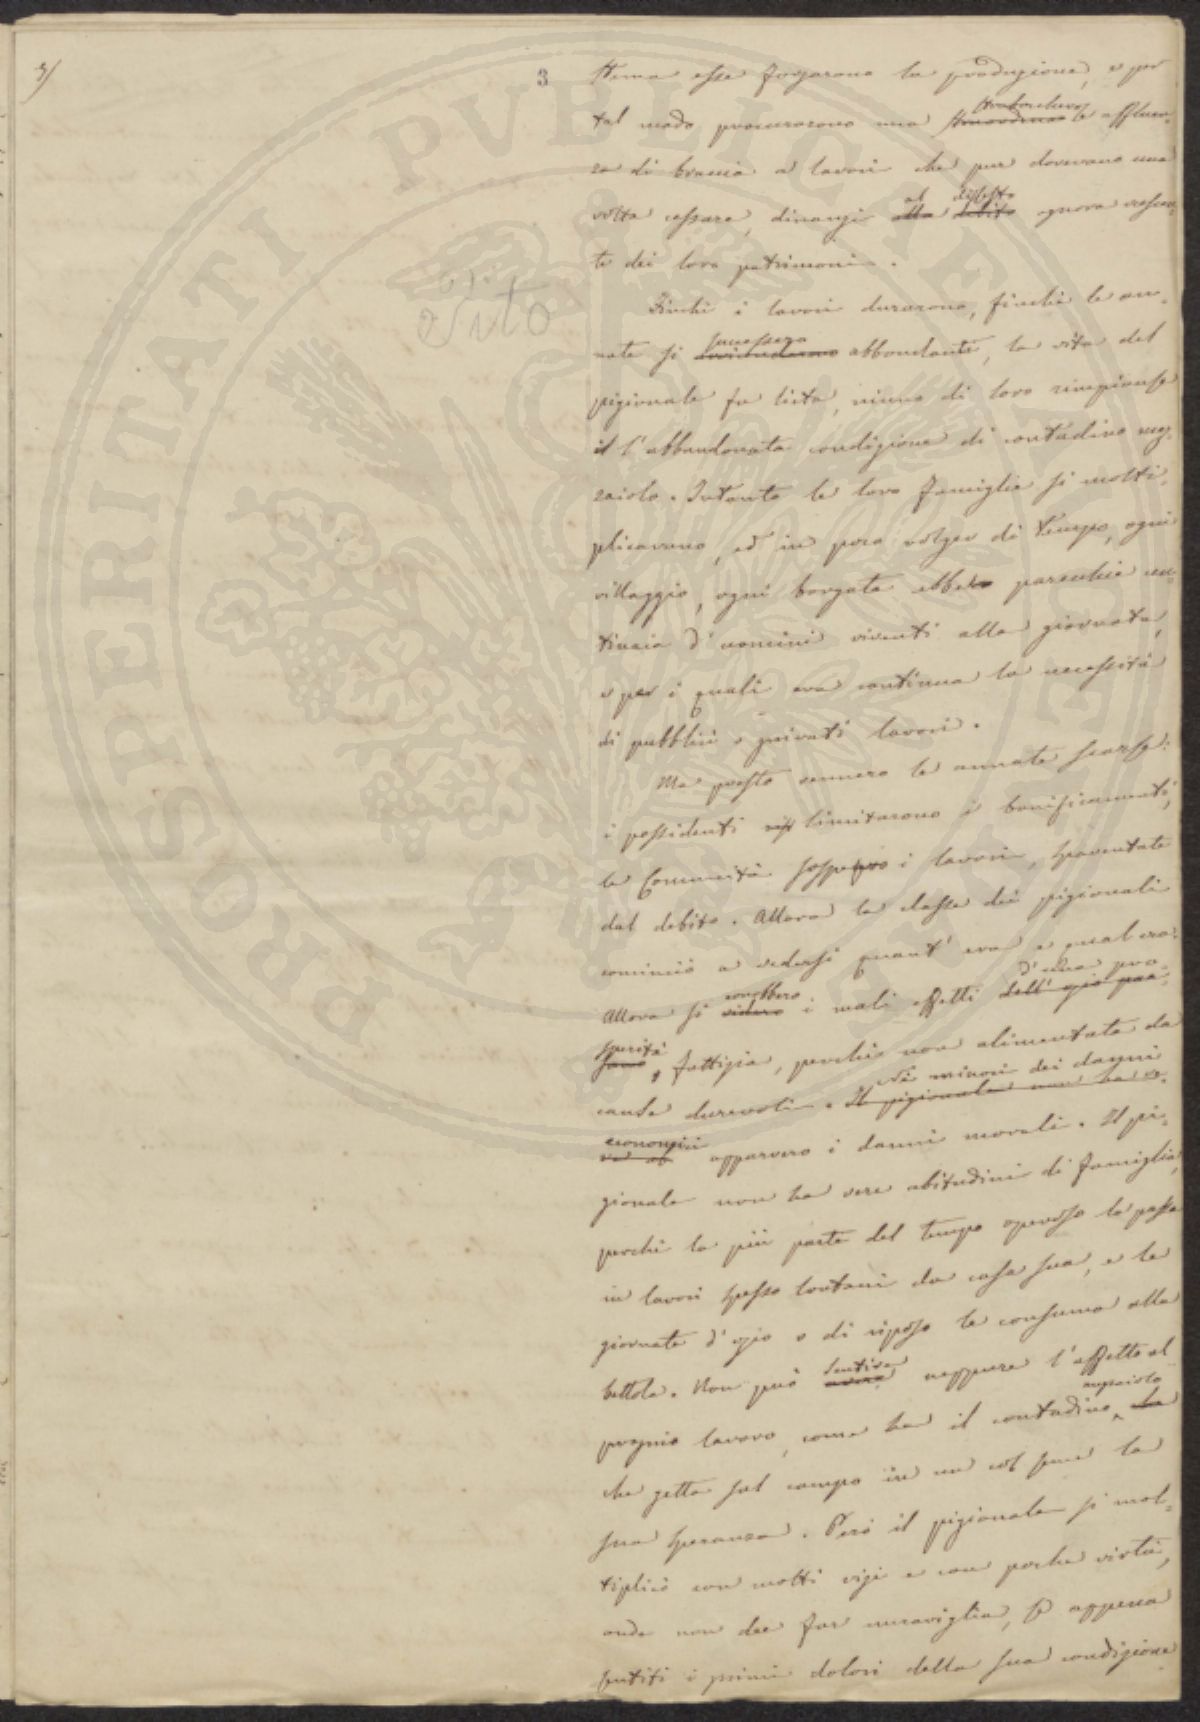 3/
3
stema esse forzarono la produzione, e per
tal modo procurarono una straordinaria le affluen-
za di braccia a lavori che pur dovevano una
volta cessare, dinanzi alla debito al dissesto ognora crescen-
te dei loro patrimoni.
Finchè i lavori durarono, finchè le an-
nate si successero abbondanti, la vita del
pigionale fu lieta, niuno di loro rimpianse
il l'abbandonata condizione di contadino mez-
zaiolo. Intanto le loro famiglie si molti-
plicavano, ed in poco volger di tempo, ogni
villaggio, ogni borgata ebbero parecchie cen-
tinaia d'uomini viventi alla giornata,
e per i quali era continua la necessità
di pubblici o privati lavori.
Ma presto vennero le annate scarse:
i possidenti limitarono i bonificamenti,
le Comunità sospesero i lavori, spaventate
dal debito. Allora la classe dei pigionali
cominciò a vedersi quant'era e qual era:
Allora si videro conobbero i mali effetti dell' d'una pro-
sperità fattizia, perchè non alimentata da
cause durevoli. Il pigionale non ha Nè minori dei danni
economici apparvero i danni morali. Il pi-
gionale non ha vere abitudini di famiglia,
perchè la più parte del tempo operoso la passa
in lavori spesso lontani da casa sua, e le
giornate d'ozio o di riposo le consuma alla
bettola. Non può avere sentire neppure l'affetto al
proprio lavoro, come ha il contadino mezzaiolo
che getta sul campo in un col seme la
sua speranza. Però il pigionale si mol-
tiplicò con molti vizi e con poche virtù,
onde non dee far meraviglia, se appena
sentiti i primi dolori della sua condizione
Vito
PROSPERITATI PVBLICAE AVGENDAE